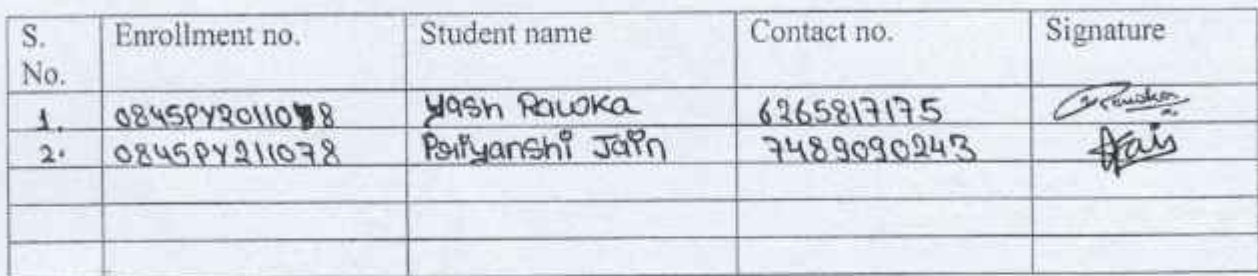 S. No. Enrollment no. Student name Contact no. Signature
1. Yash Rawka 6265817175
2. 0845PY211078 Priyanshi Jain 7489090243 Jain